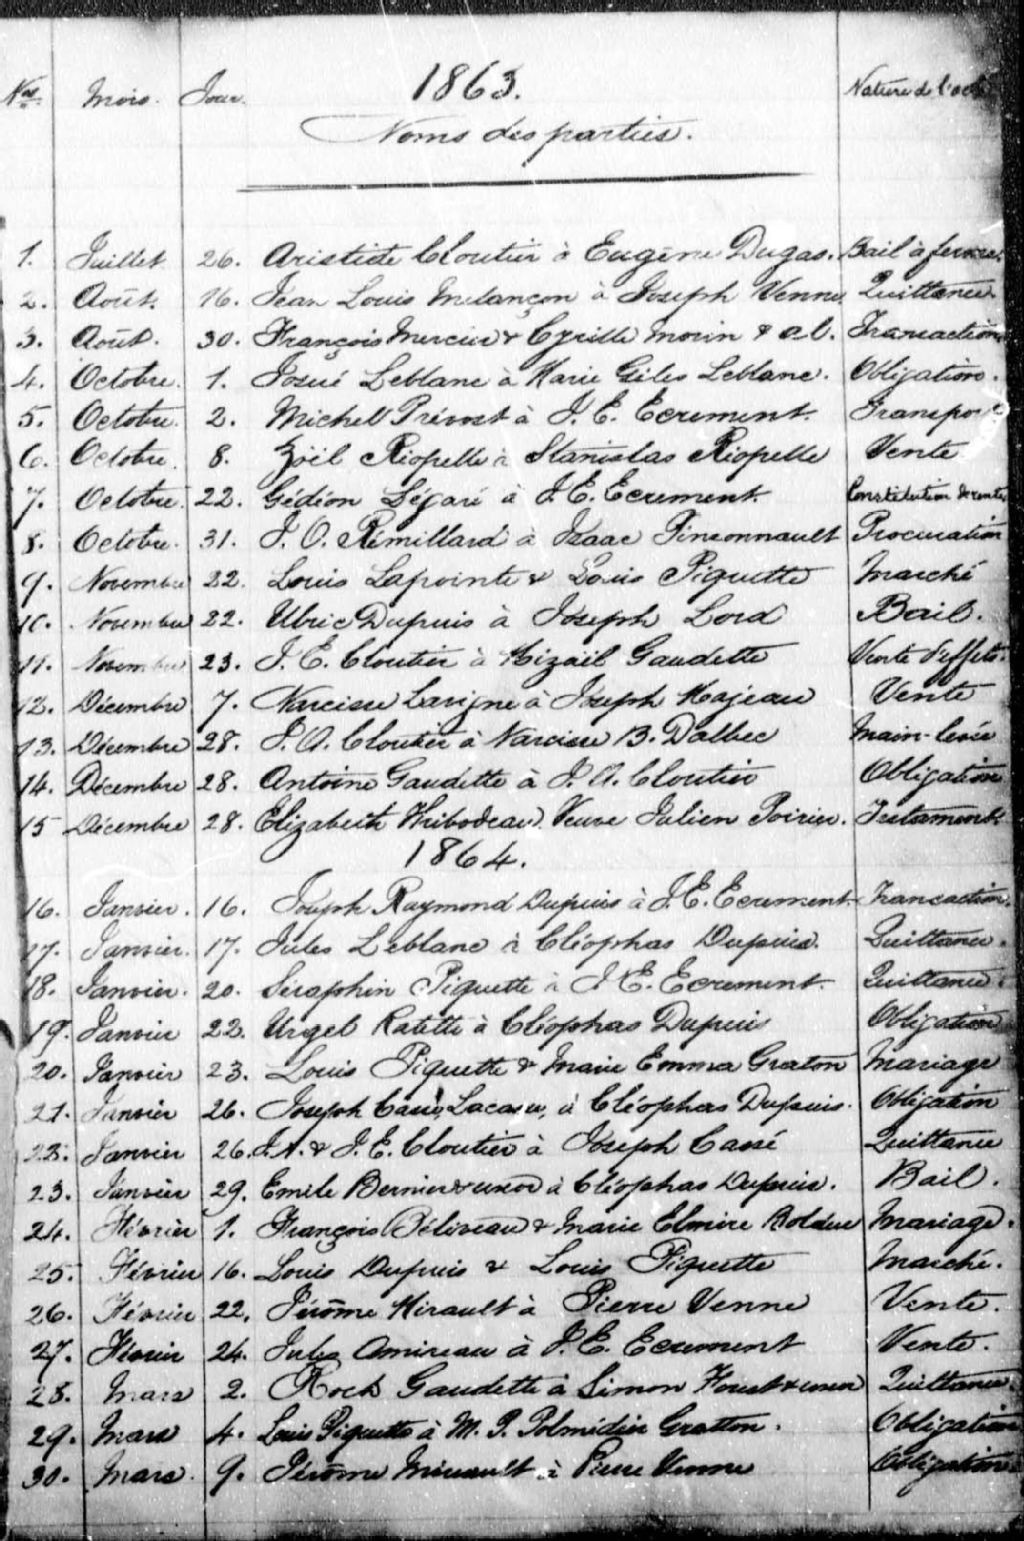 1863.
Nos. Mois. Jour. Nature de l'acte
Noms des parties.
1. Juillet 26. Aristide Cloutier à Eugène Dugas. Bail à ferme.
2. Août. 16. Jean Louis Melançon à Joseph Venne Quittance.
3. Août. 30. François Mercier & Cyrille Morin & al. Transaction
4. Octobre. 1. Josué Leblanc à Marie Giles Leblanc. Obligation.
5. Octobre. 2. Michel Prévost à J. E. Ecrement. Transport
6. Octobre. 8. Zoël Riopelle à Stanislas Riopelle Vente
7. Octobre. 22. Gédéon Légaré à J. E. Ecrement. Constitution de rente
8. Octobre. 31. J. O. Rémillard à Isaac Pinsonnault Procuration
9. Novembre 22. Louis Lapointe & Louis Piquette Marché
10. Novembre 22. Ulric Dupuis à Joseph Lord Bail.
11. Novembre 23. J. E. Cloutier à Mizaël Gaudette Vente d'effets.
12. Décembre 7. Narcisse Lavigne à Joseph Majeau Vente
13. Décembre 28. J. A. Cloutier à Narcisse B. Dalbec Main-levée
14. Décembre 28. Antoine Gaudette à J. A. Cloutier Obligation
15 Décembre 28. Elizabeth Thibodeau Veuve Julien Poirier. Testament.
1864.
16. Janvier. 16. Joseph Raymond Dupuis à J. E. Ecrement Transaction.
17. Janvier. 17. Jules Leblanc à Cléophas Dupuis. Quittance.
18. Janvier. 20. Séraphin Piquette à J. E. Ecrement. Quittance.
19. Janvier 22. Urgel Ratelle à Cléophas Dupuis Obligation
20. Janvier 23. Louis Piquette & Marie Emma Graton Mariage
21. Janvier 26. Joseph Cassé, Lacasse, à Cléophas Dupuis. Obligation
22. Janvier 26. J. A. & J. E. Cloutier à Joseph Cassé Quittance
23. Janvier 29. Emile Bernier & uxor à Cléophas Dupuis. Bail.
24. Février 1. François Béliveau & Marie Elmire Bolduc Mariage.
25. Février 16. Louis Dupuis & Louis Piquette Marché.
26. Février 22. Jérôme Mirault à Pierre Venne Vente.
27. Février 24. Jules Amireau à J. E. Ecrement Vente.
28. Mars 2. Rock Gaudette à Simon Foust & uxor Quittance.
29. Mars 4. Louis Piquette à M. P. Polmidin Gratton. Obligation
30. Mars. 9. Jérôme Mirault à Pierre Venne Obligation.